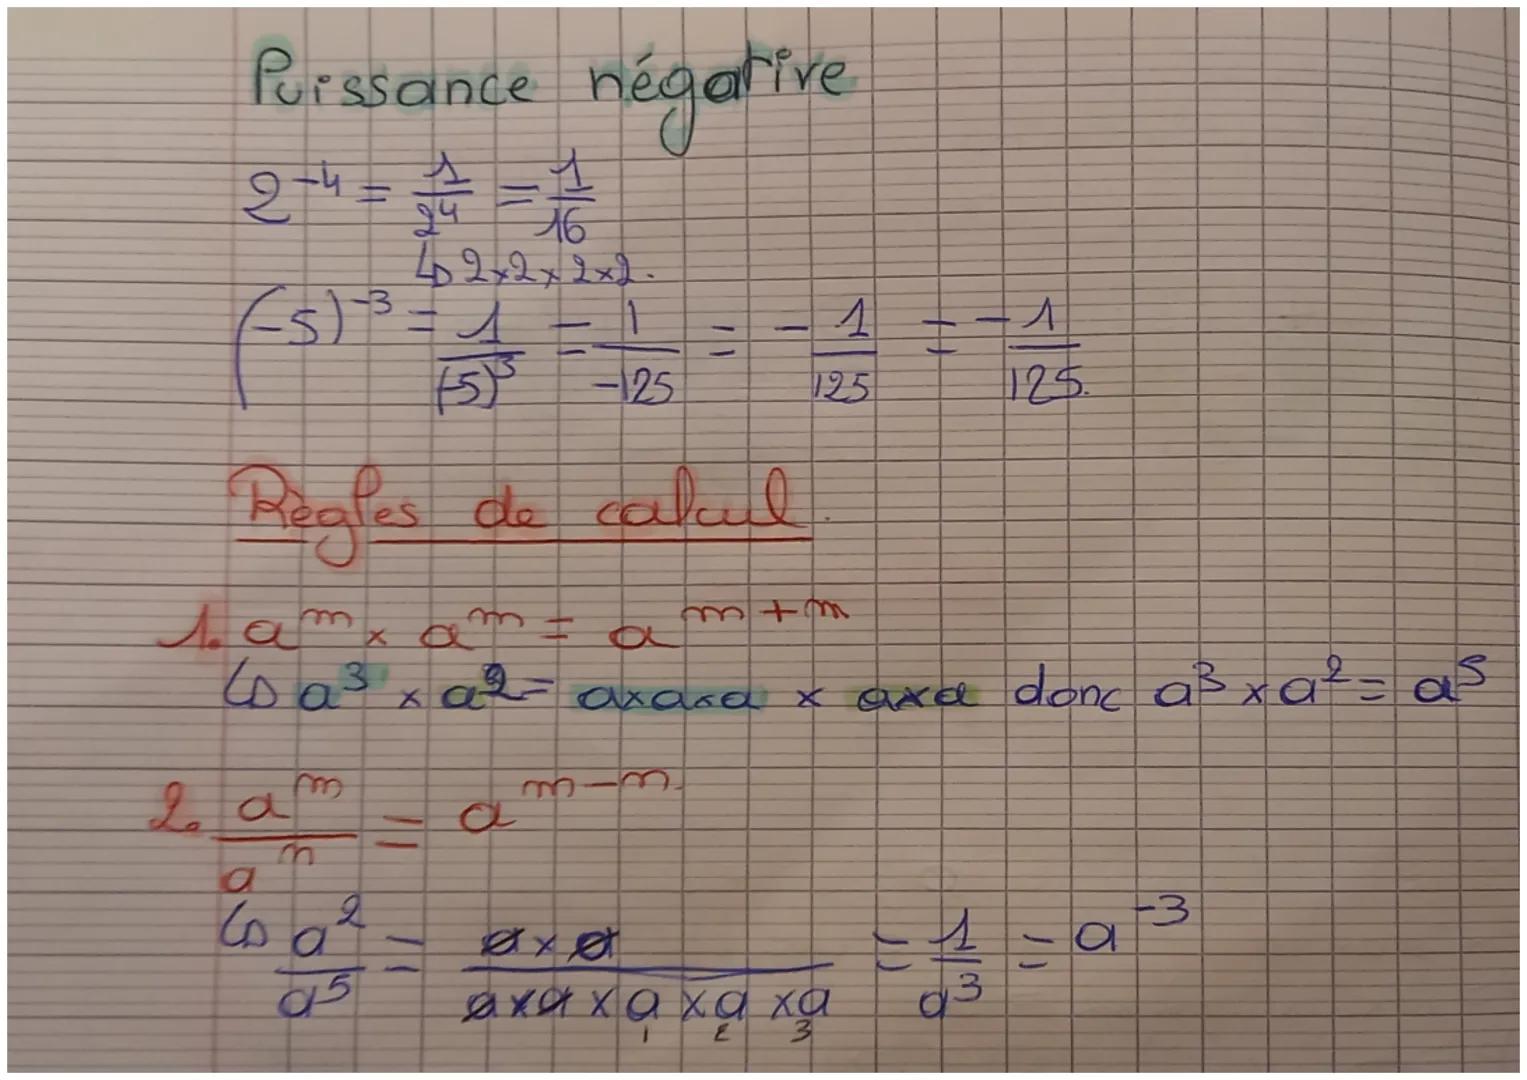 Puissance négative
2⁻⁴ = 1/2⁴ = 1/16
↳ 2×2×2×2.
(-5)⁻³ = 1/(-5)³ = 1/-125 = - 1/125 = - 1/125.
Règles de calcul.
1. aᵐ × aⁿ = aᵐ⁺ⁿ
↳ a³ × a² = a×a×a × a×a donc a³ × a² = a⁵
2. aᵐ/aⁿ = aᵐ⁻ⁿ
↳ a²/a⁵ = a×a/a×a×a×a×a = 1/a³ = a⁻³
1 2 3